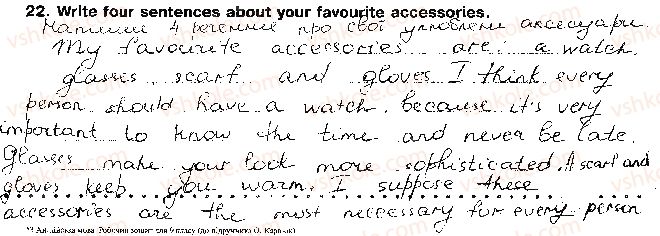 22. Write four sentences about your favourite accessories.
Напиши 4 речення про свої улюблені аксесуари.
My favourite accessories are a watch
glasses scarf and gloves I think every
person should have a watch because it's very
important to know the time and never be late.
Glasses make your look more sophisticated. A scarf and
gloves keep you warm. I suppose these
accessories are the most necessary for every person
*3 Англійська мова Робочий зошит для 9 класу (до підручника О. Карпюк)